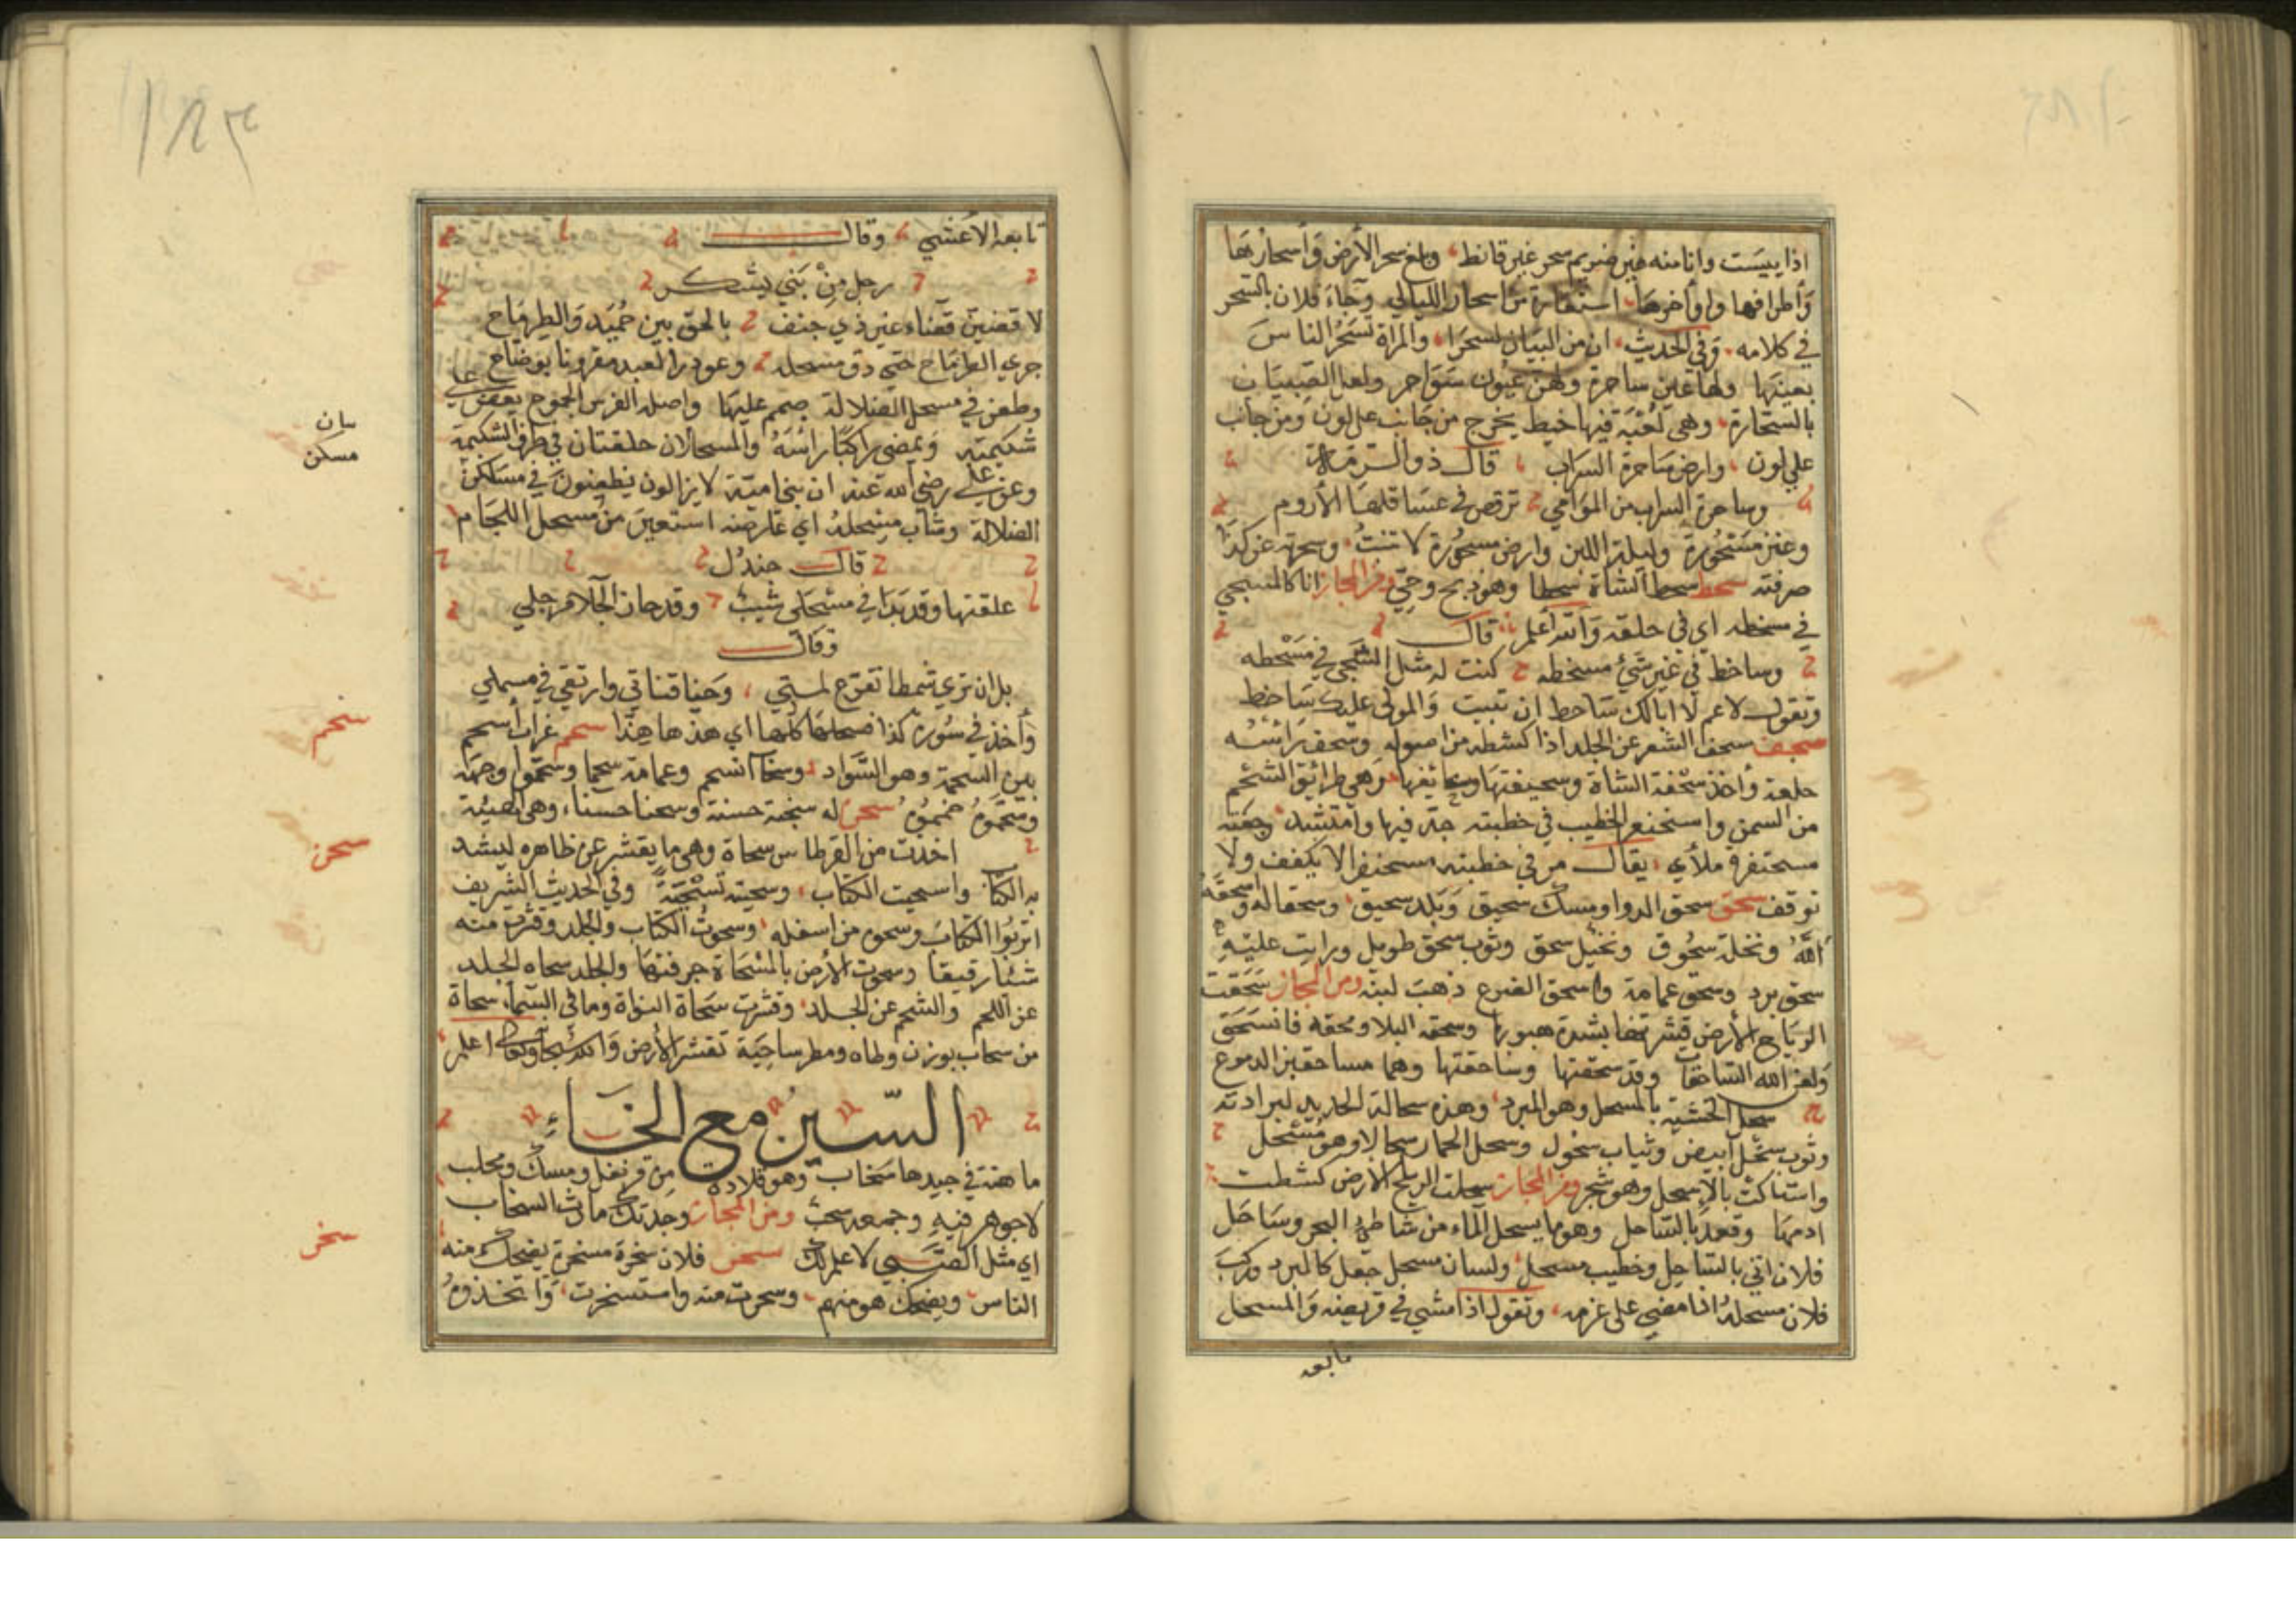 اذا يبست وانا منه غير ضريم سحر غير قانط وبلغ سحر الأرض وأسحارها
وأطرافها واواخرها استعارة من اسحار الليالي وجاء فلان بالسحر
في كلامه وفي الحديث ان من البيان لسحرا والمراة تسحر الناس
بعينها ولها عين ساحرة ولهن عيون سواحر ولعل الصبيان
بالسحارة وهي لعبة فيها خيط يخرج من جانب على لون ومن جانب
على لون وارض ساحرة السراب قال ذو الرمة
وساحرة السراب من الموامي ترقص في عساقلها الأروم
وعنز مسحورة وليلة اللبن وارض مسحورة لا تنبت وسحرته عن كذا
صرفته سحط سحط الشاة سحطا وهو ذبح وحي ومن المجاز انا كالشجي
في مسحطه اي في حلقه والله أعلم قال
وساخط في غير شئ مسخطه كنت له مثل الشجي في مسحطه
وتقول لاعم لا ابالك ساحط ان تبيت والمولى عليك ساخط
سحف سحف الشعر عن الجلد اذا كشطه من اصوله وسحف رأسه
حلقه وأخذ سحفة الشاة وسحيفتها وسحائفها وهي طرائق الشحم
من السمن واسحنفر الخطيب في خطبته جد فيها وامتشد وجعبته
مسحنفرة ملأي يقال مر في خطبته مسحنفرا لا يكفف ولا
توقف سحق سحق الدوا ومسك سحيق وبلد سحيق وسحقا له واسحقه
الله ونخلة سحوق ونخيل سحق وثوب سحق طويل ورايت عليه
سحق برد وسحق عمامة واسحق الضرع ذهب لبنه ومن المجاز سحقت
الرياح الأرض قشرتها بشدة هبوبها وسحقه البلا ومحقه فانسحق
ولعن الله الساحقات وقد سحقتها وساحقتها وهما مساحقتان الدموع
سحل الخشبة بالمسحل وهو المبرد وهذه سحالة الحديد لبرادته
وثوب سحل أبيض وثياب سحول وسحل الحمار سحالا وهو مسحل
واستاكت بالاسحل وهو شجر ومن المجاز سحلت الريح الأرض كشطت
ادمها وقعد بالساحل وهو ما يسحل الماء من شاطئ البحر وساحل
فلان اتى بالساحل وخطيب مسحل ولسان مسحل جعل كالمبرد وركب
فلان مسحله اذا مضى على عزمه وتقول اذا مشي في قريضه والمسحل
تابعه
تابعه الأعشي وقال
رجل من بني يشكر
لاقضين قضاء غير ذي جنف بالحق بين حميد والطرماح
جري الطرماح حتى دق مسحله وعودر العبد مقرونا بوضاح
وطعن في مسحل الضلالة صمم عليها واصله الفرس الجموح يعض على
شكيمته ويمضي راكبا رأسه والمسحلان حلقتان في طرفي الشكيمة
وعن علي رضي الله عنه ان بني امية لا يزالون يطعنون في مسكن
بيان
مسكن
الضلالة وشاب مسحله اي عارضه استعير من مسحل اللجام
قال جندل
علقتها وقد بدا في مسحلي شيب وقد حان الجلا مرجلي
وقال
بل ان تري شمطا تفرع لمتي وحنا قناتي وارتقي في مسحلي
وأخذ في سورة كذا فسحلها كلها اي هذها هذا سحم غراب أسحم
سحم
بين السحمة وهو السواد وسحاب اسحم وعمامة سحما وسحموا وجهه
وسخموه حمموه سحن له سحنة حسنة وسحنا حسنا وهي الهيئة
سحن
اخذت من القرطاس سحاة وهي ما يقشر عن ظاهره ليشد
به الكتاب واسحيت الكتاب وسحيته تسحية وفي الحديث الشريف
اتربوا الكتاب وسحوه من اسفله وسحوت الكتاب والجلد وقشرت منه
شيئا رقيقا وسحوت الأرض بالمسحاة جرفتها والجلد سحاه الجلد
عن اللحم والشحم عن الجلد وقشرت سحاة النواة وما في السماء سحاة
من سحاب بوزن وطاه ومطر ساحية تقشر الأرض والله سبحانه وتعالى اعلم
السين مع الخاء
ما هنة في جيدها سخاب وهو قلادة من قرنفل ومسك ومحلب
لا جوهر فيه وجمعه سخب ومن المجاز وجدتك مارث السخاب
اي مثل الصبي لا علم لك سخر فلان سخرة مسخرة يضحك منه
سخر
الناس ويضحك هو منهم وسخرت منه واستسخرت واتخذوه